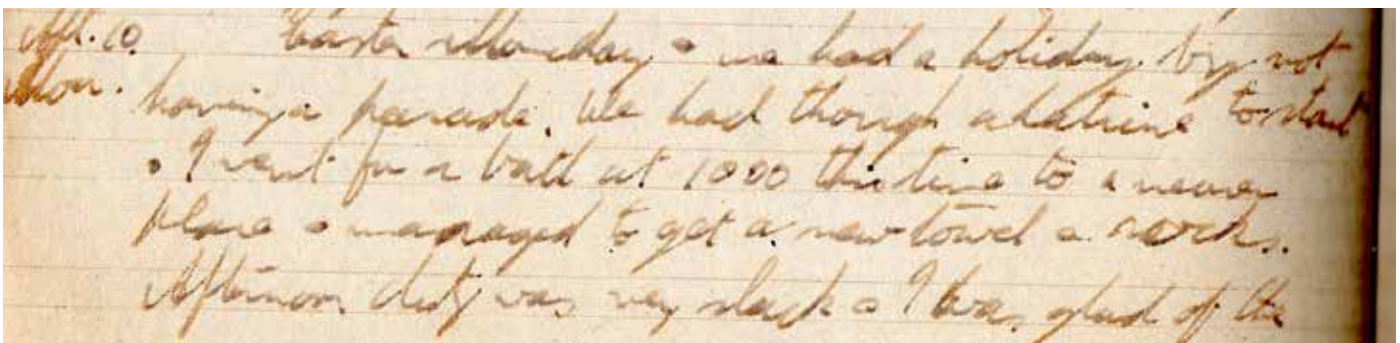 Apl. 10. Easter Monday & we had a holiday by not
Mon. having a parade. We had though a latrine to start
& I went for a bath at 1000 this time to a nearer
place & managed to get a new towel & socks.
Afternoon duty was very slack & I was glad of the